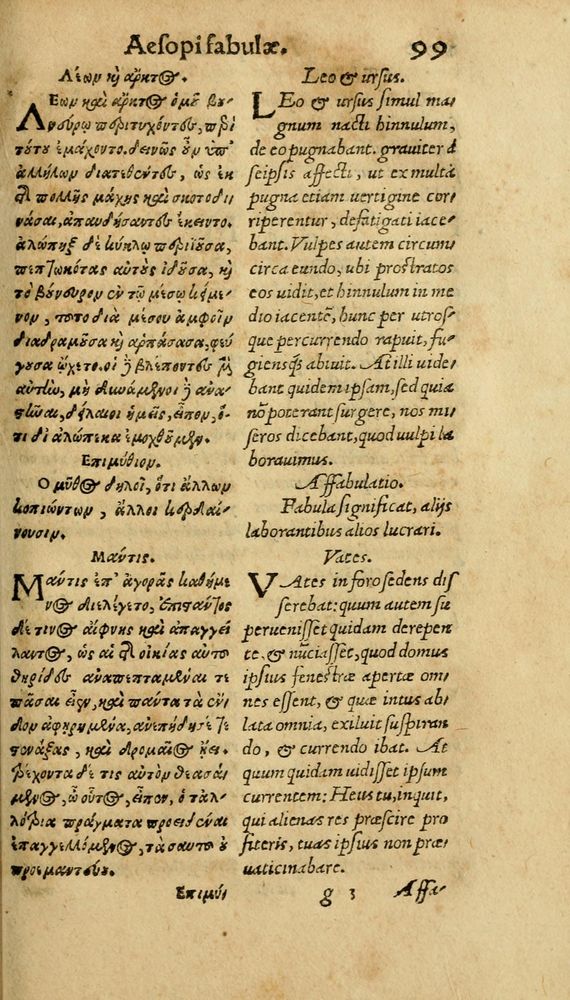 Aesopi fabulæ. 99
Λέων καὶ ἄρκτος.
ΛΕων καὶ ἄρκτος ὁμοῦ βου-
νεύρῳ περιτυχόντες, περὶ
τούτου ἐμάχοντο. δεινῶς οὖν ὑπ'
ἀλλήλων διατεθέντες, ὡς ἐκ
τῆς πολλῆς μάχης καὶ σκοτοδι-
νάσαι, ἀπαυδήσαντες ἔκειντο.
ἀλώπηξ δὲ κύκλῳ περιιοῦσα,
πεπτωκότας αὐτοὺς ἰδοῦσα, καὶ
τὸ βούνευρον ἐν τῷ μέσῳ κείμε-
νον, τοῦτο διὰ μέσου ἀμφοῖν
διαδραμοῦσα καὶ ἁρπάσασα, φεύ-
γουσα ᾤχετο. οἱ δὲ βλέποντες μὲν
αὐτὴν, μὴ δυνάμενοι δὲ ἀνα-
στῆναι, δείλαιοι ἡμεῖς, εἶπον, ὅ-
τι δι' ἀλώπεκα ἐμοχθοῦμεν.
Ἐπιμύθιον.
Ο μῦθος δηλοῖ, ὅτι ἄλλων
κοπιώντων, ἄλλοι κερδαί-
νουσιν.
Μάντις.
ΜΑντις ἐπ' ἀγορᾶς καθήμε-
νος διελέγετο, ἐπιστάντος
δέ τινος αἴφνης καὶ ἀπαγγεί-
λαντος, ὡς αἱ τῆς οἰκίας αὐτοῦ
θυρίδες ἀναπεπταμέναι τε
πᾶσαι εἶεν, καὶ πάντα τὰ ἔν-
δον ἀφῃρημένα, ἀνεπήδησέ τε
στονάξας, καὶ δρομαῖος ᾔει.
τρέχοντα δέ τις αὐτὸν θεασά-
μενος, ὦ οὗτος, εἶπεν, ὁ τἀλ-
λότρια πράγματα προειδέναι
ἐπαγγελλόμενος, τὰ σαυτοῦ οὐ
προεμαντεύου.
Ἐπιμύ-
Leo & ursus.
LEo & ursus simul ma-
gnum nacti hinnulum,
de eo pugnabant. grauiter à
seipsis affecti, ut ex multa
pugna etiam uertigine cor-
riperentur, defatigati iace-
bant. Vulpes autem circum
circa eundo, ubi prostratos
eos uidit, et hinnulum in me
dio iacentē, hunc per utros-
que percurrendo rapuit, fu-
giensq́; abiuit. At illi uide-
bant quidem ipsam, sed quia
nō poterant surgere, nos mi-
seros dicebant, quod uulpi la
borauimus.
Affabulatio.
Fabula significat, alijs
laborantibus alios lucrari.
Vates.
VAtes in foro sedens dis
serebat: quum autem su
peruenisset quidam derepen-
te, & nūciasset, quod domus
ipsius fenestræ apertæ om-
nes essent, & quæ intus ab-
lata omnia, exiluit suspiran-
do, & currendo ibat. At
quum quidam uidisset ipsum
currentem: Heus tu, inquit,
qui alienas res præscire pro
fiteris, tuas ipsius non præ-
uaticinabare.
g 3 Affa-